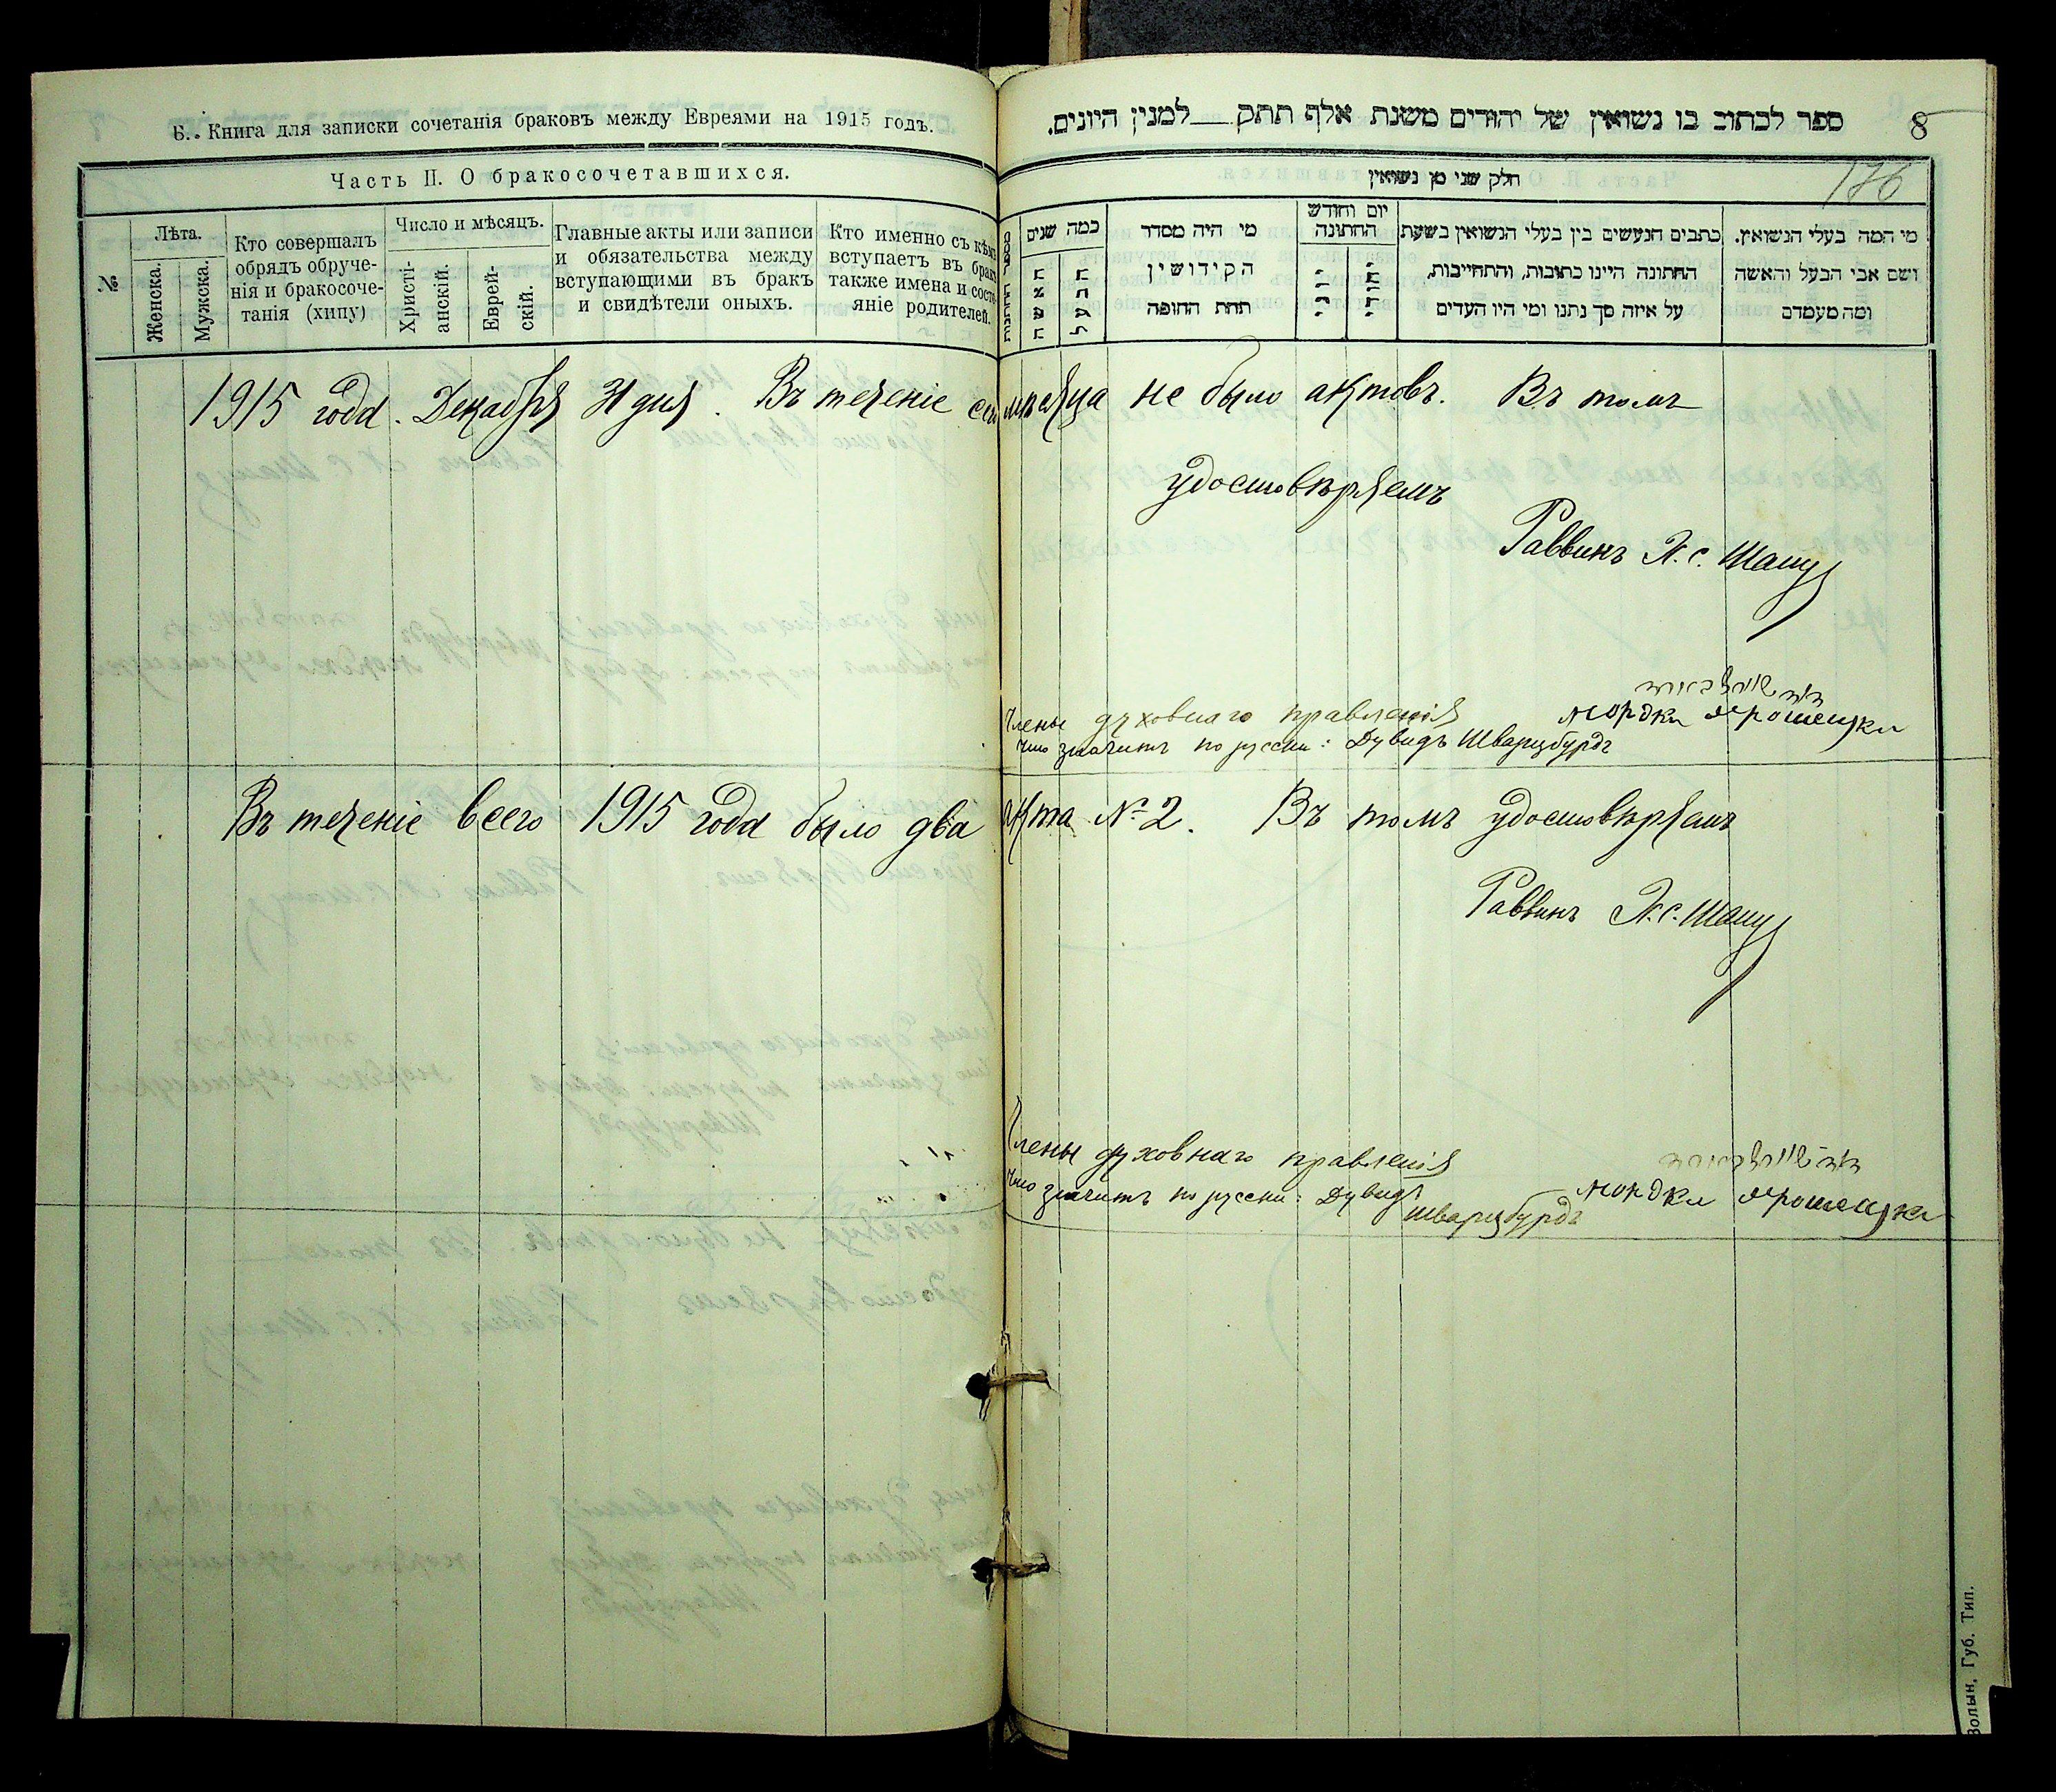 Б. Книга для записки сочетанія браковъ между Евреями на 1915 годъ.
Часть II. О бракосочетавшихся.
№
Лѣта.
Женска.
Мужска.
Кто совершалъ
обрядъ обруче-
нія и бракосоче-
танія (хипу)
Число и мѣсяцъ.
Христі-
анскій.
Еврей-
скій.
Главные акты или записи
и обязательства между
вступающими въ бракъ
и свидѣтели оныхъ.
Кто именно съ кѣмъ
вступаетъ въ бракъ
также имена и состо-
яніе родителей.
ספר לכתוב בו נשואין של יהודים משנת אלף תתק למנין היונים.
8
חלק שני מן נשואין
176
כמה שנים
האשה
הבעל
מי היה מסדר
הקידושין
תחת החופה
יום וחודש
החתונה
יוני
יהודי
כתבים הנעשים בין בעלי הנשואין בשעת
החתונה היינו כתובות, והתחייבות,
על איזה סך נתנו ומי היו העדים
מי המה בעלי הנשואין.
ושם אבי הבעל והאשה
ומה מעמדם
1915 года. Декабря 31 дня. Въ теченіе сего мѣсяца не было актовъ. Въ томъ
удостовѣряемъ
Раввинъ
Члены духовнаго правленія Мордко Ярошецки
что значитъ по русски: Дувидъ Шварцбурдъ
Въ теченіе всего 1915 года было два акта № 2. Въ томъ удостовѣряемъ
Раввинъ
Члены духовнаго правленія
что значитъ по русски: Дувидъ Мордко Ярошецки
Шварцбурдъ
Волын. Губ. Тип.